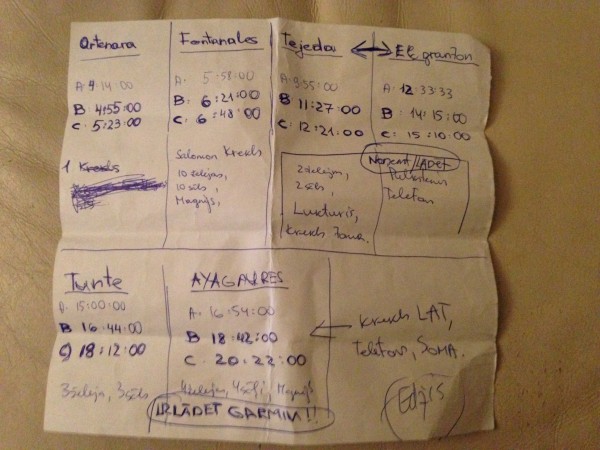 Artenara
A 4 14:00
B 4:55:00
C 5:23:00
1 Krekls
Fontanales
A. 5:58:00
B: 6:21:00
C: 6:48:00
Salomon Krekls
10 želejas,
10 sāls,
Magnijs,
Tejeda
A 9:55:00
B 11:27:00
C 12:21:00
2 želejas,
2 sāls,
Lukturis,
krekls žoma.
El garañon
A: 12:33:33
B: 14:15:00
C: 15:10:00
LĀDĒT
Pulksteni
Telefons
Tunte
A. 15:00:00
B 16:44:00
C) 18:12:00
3 želejas, 3 sāls
AYAGAURES
A. 16:54:00
B 18:42:00
C. 20:22:00
4 želejas, 4 sāļi, Magnijs
IZLĀDĒT GARMIN!!
krekls LAT,
Telefons, SOMA.